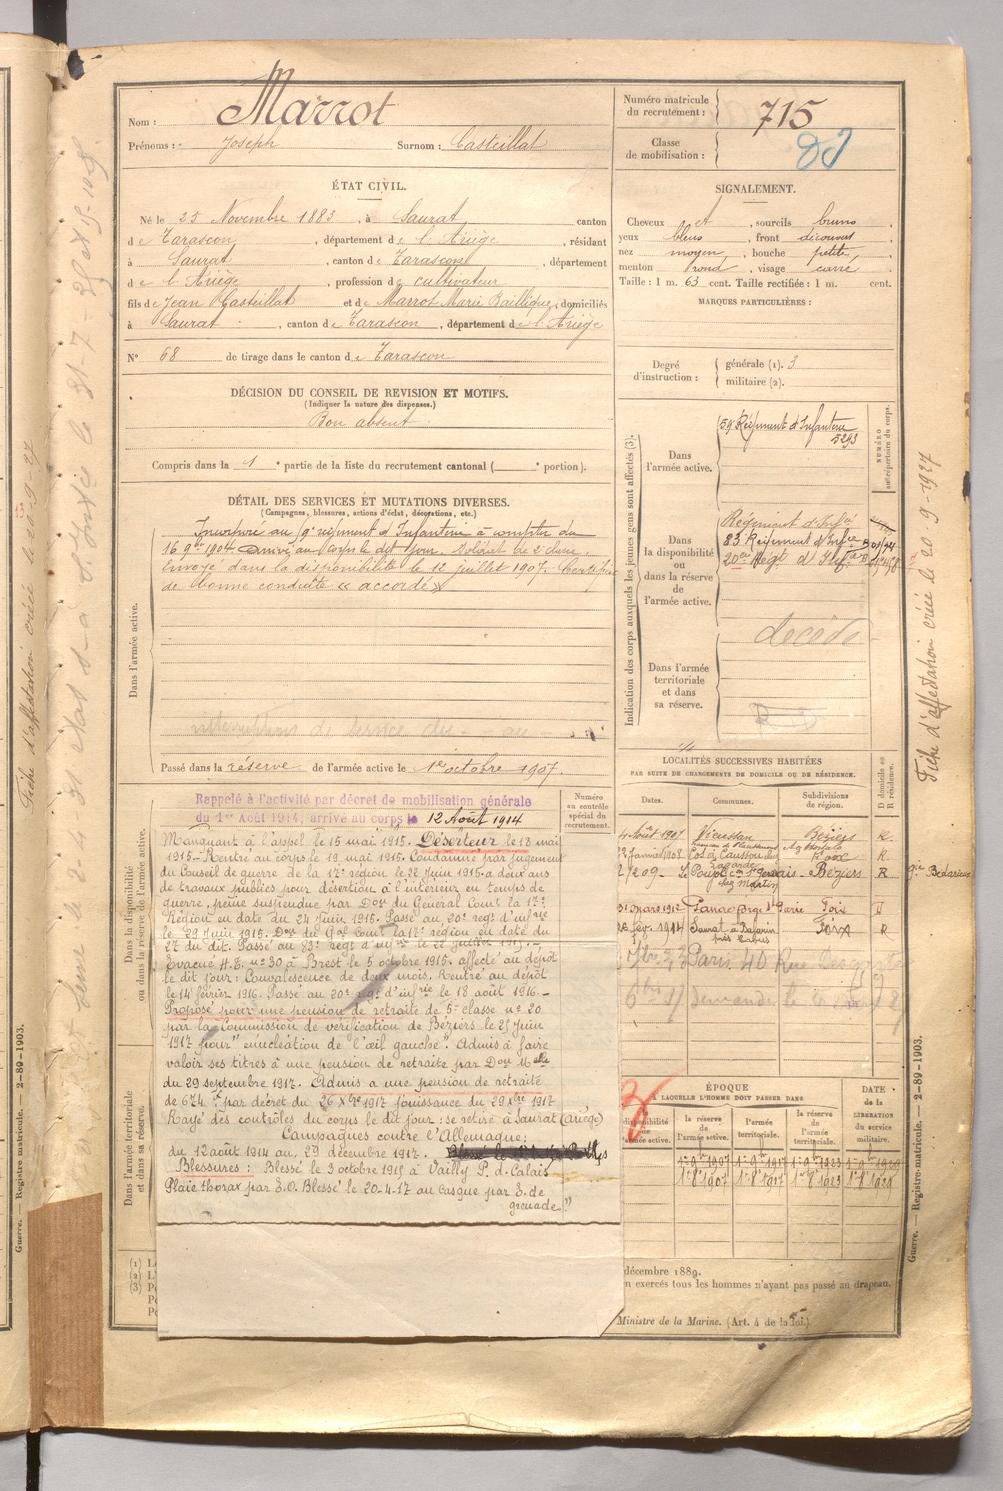 Nom : Marrot
Prénoms : Joseph Surnom : Casteillat
Numéro matricule du recrutement : 715
Classe de mobilisation :
ÉTAT CIVIL.
Né le 25 Novembre 1883, à Saurat, canton
de Tarascon, département de l'Ariège, résidant
à Saurat, canton de Tarascon, département
de l'Ariège, profession de cultivateur
fils de Jean Casteillat et de Marrot Marie, domiciliés
à Saurat, canton de Tarascon, département de l'Ariège
N° 68 de tirage dans le canton de Tarascon
SIGNALEMENT.
Cheveux et, sourcils bruns,
yeux bleus, front découvert,
nez moyen, bouche petite,
menton rond, visage carré.
Taille : 1 m. 63 cent. Taille rectifiée : 1 m. cent.
MARQUES PARTICULIÈRES :
Degré d'instruction : générale (1). 3
militaire (2).
DÉCISION DU CONSEIL DE REVISION ET MOTIFS.
(Indiquer la nature des dispenses.)
Bon absent
Compris dans la 1e partie de la liste du recrutement cantonal ( e portion).
DÉTAIL DES SERVICES ET MUTATIONS DIVERSES.
(Campagnes, blessures, actions d'éclat, décorations, etc.)
Dans l'armée active.
Incorporé au 9e régiment d'Infanterie à compter du
16 9bre 1904 arrivé au corps le dit jour. Soldat de 2e classe.
Envoyé dans la disponibilité le 12 juillet 1907. Certificat
de bonne conduite « accordé »
Passé dans la réserve de l'armée active le 1er octobre 1907.
Indication des corps auxquels les jeunes gens sont affectés (3).
NUMÉRO au répertoire du corps.
Dans l'armée active.
59e Régiment d'Infanterie
5293
Dans la disponibilité ou dans la réserve de l'armée active.
Régiment d'Infie
83e Régiment d'Infie
20e Régt d'Infie
Dans l'armée territoriale et dans sa réserve.
décédé
LOCALITÉS SUCCESSIVES HABITÉES
PAR SUITE DE CHANGEMENTS DE DOMICILE OU DE RÉSIDENCE.
Dates. Communes. Subdivisions de région. D domicile ou R résidence.
4 Août 1907 Vieussan Béziers R.
Foix R
Le Poujol cn St Gervais - Béziers R
chez Martin
31 mars 1912 Foix D
Saurat à
Foix R
Paris 40 Rue
Dans la disponibilité ou dans la réserve de l'armée active.
Numéro au contrôle spécial du recrutement.
Rappelé à l'activité par décret de mobilisation générale
du 1er Août 1914, arrivé au corps le 12 Août 1914
Manquant à l'appel le 15 mai 1915. Déserteur le 18 mai
1915 - Rentré au corps le 19 mai 1915. Condamné par jugement
du Conseil de guerre de la 17e région le 22 Juin 1915 à deux ans
de travaux publics pour désertion à l'intérieur en temps de
guerre, peine suspendue par Don du Général Comt la 17e
Région en date du 24 Juin 1915. Passé au 20e régt d'infrie
le 29 Juin 1915. Don du Gal Comt la 17e région en date du
27 du dit. Passé au 83e régt d'infrie le 22 juillet 1915.-
Evacué H.T. n°30 à Brest le 5 octobre 1915. affecté au dépôt
le dit jour : Convalescence de deux mois. Rentré au dépôt
le 14 février 1916. Passé au 20e régt d'infrie le 18 août 1916.-
Proposé pour une pension de retraite de 5e classe n° 20
par la Commission de vérification de Béziers le 25 Juin
1917 pour "énucléation de l'œil gauche". Admis à faire
valoir ses titres à une pension de retraite par Don Melle
du 29 septembre 1917. Admis a une pension de retraite
de 674 f par décret du 26 Xbre 1917 jouissance du 29 Xbre 1917
Rayé des contrôles du corps le dit jour : se retire à Saurat (Ariège)
Campagnes contre l'Allemagne:
du 12 août 1914 au 29 décembre 1917.
Blessures : Blessé le 3 octobre 1915 à Vailly P. d. Calais
Plaie thorax par E.O. Blessé le 20-4-17 au casque par E. de
grenade."
Dans l'armée territoriale et dans sa réserve.
ÉPOQUE
À LAQUELLE L'HOMME DOIT PASSER DANS
la réserve de l'armée active. l'armée territoriale. la réserve de l'armée territoriale.
DATE de la LIBÉRATION du service militaire.
décembre 1889.
n exercés tous les hommes n'ayant pas passé au drapeau.
Ministre de la Marine. (Art. 4 de la loi.)
Guerre. — Registre-matricule. — 2-89-1903.
Fiche d'affectation créée le 20 9-1927
Guerre. — Registre matricule. — 2-89-1903.
Fiche d'affectation créée le